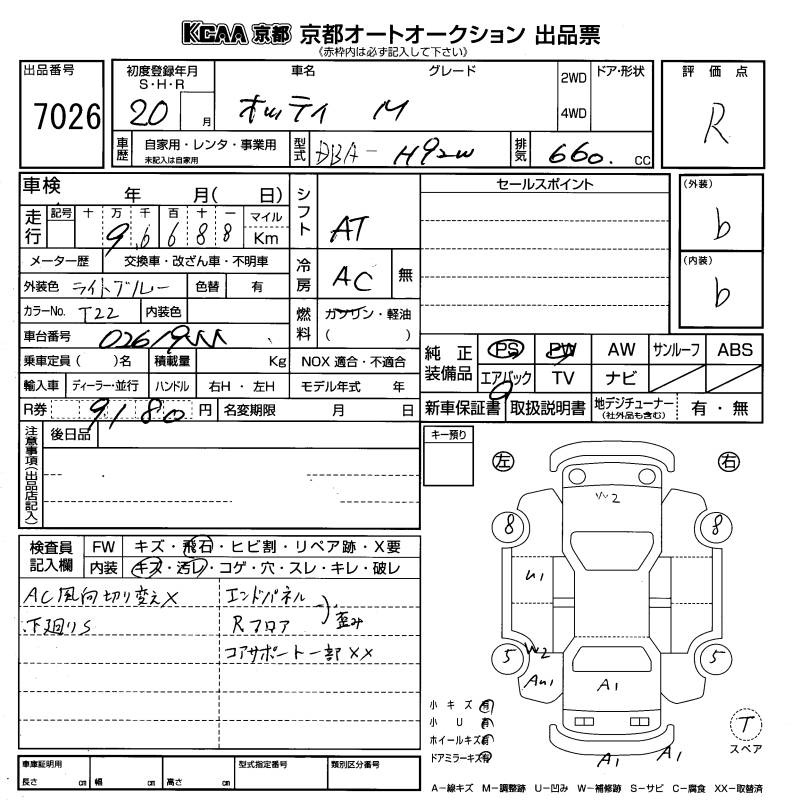 KCAA 京都 京都オートオークション 出品票
《赤枠内は必ず記入して下さい》
出品番号
7026
初度登録年月
S・H・R
20 月
車名 グレード
オッティ M
2WD
4WD
ドア・形状
評価点
R
車歴 自家用・レンタ・事業用
未記入は自家用
型式 DBA-H92W
排気 660. cc
車検 年 月( 日)
走行 記号 十 万 千 百 十 一 マイル
9 6 6 8 8 Km
メーター歴 交換車・改ざん車・不明車
外装色 ライトブルー 色替 有
カラーNo. T22 内装色
車台番号
乗車定員( )名 積載量 Kg
輸入車 ディーラー・並行 ハンドル 右H・左H
R券 9180 円 名変期限 月 日
シフト AT
冷房 AC 無
燃料 ガソリン・軽油
( )
NOX 適合・不適合
モデル年式 年
セールスポイント
(外装)
b
(内装)
b
純正装備品 PS PW AW サンルーフ ABS
エアバック TV ナビ
新車保証書 取扱説明書 地デジチューナー
(社外品も含む) 有・無
注意事項(出品店記入)
後日品
キー預り
検査員記入欄
FW キズ・飛石・ヒビ割・リペア跡・X要
内装 キズ・汚レ・コゲ・穴・スレ・キレ・破レ
AC風向切り変えX
下廻りS
エンドパネル
Rフロア
歪み
コアサポート一部XX
左 右
W2
8 8
U1
W2
5 5
AU1 A1
A1 A1
小キズ 有
小U 有
ホイールキズ 有
ドアミラーキズ 有
T
スペア
車庫証明用
長さ cm 幅 cm 高さ cm
型式指定番号 類別区分番号
A-線キズ M-調整跡 U-凹み W-補修跡 S-サビ C-腐食 XX-取替済